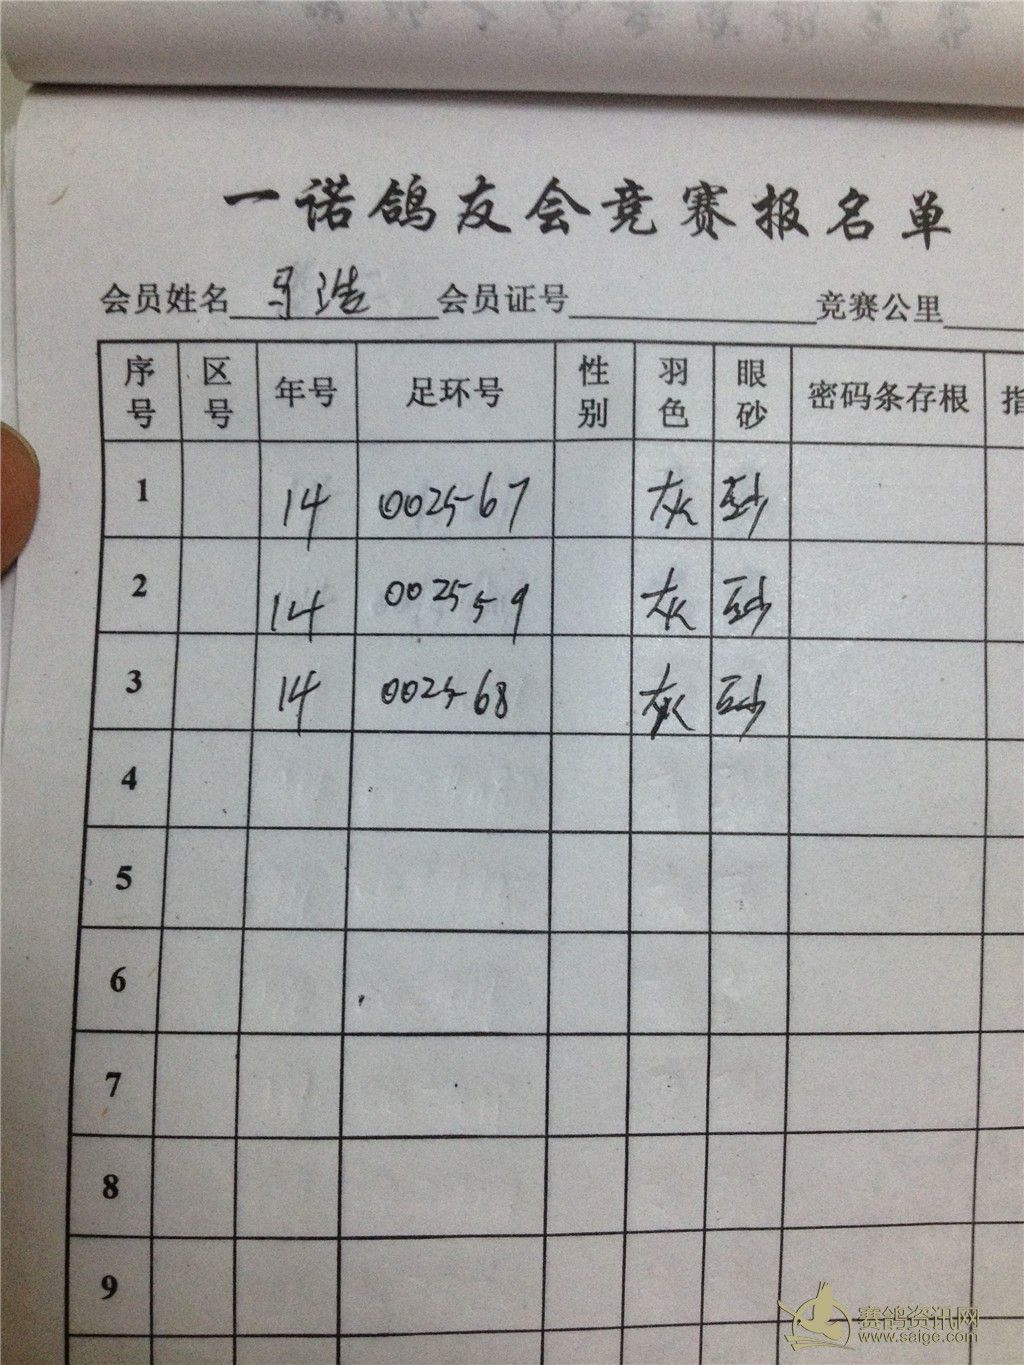 一诺鸽友会竞赛报名单
会员姓名 马浩 会员证号 竞赛公里
序号 区号 年号 足环号 性别 羽色 眼砂 密码条存根 指
1 14 002567 灰 砂
2 14 002559 灰 砂
3 14 002568 灰 砂
4
5
6
7
8
9
赛鸽资讯网
www.saige.com